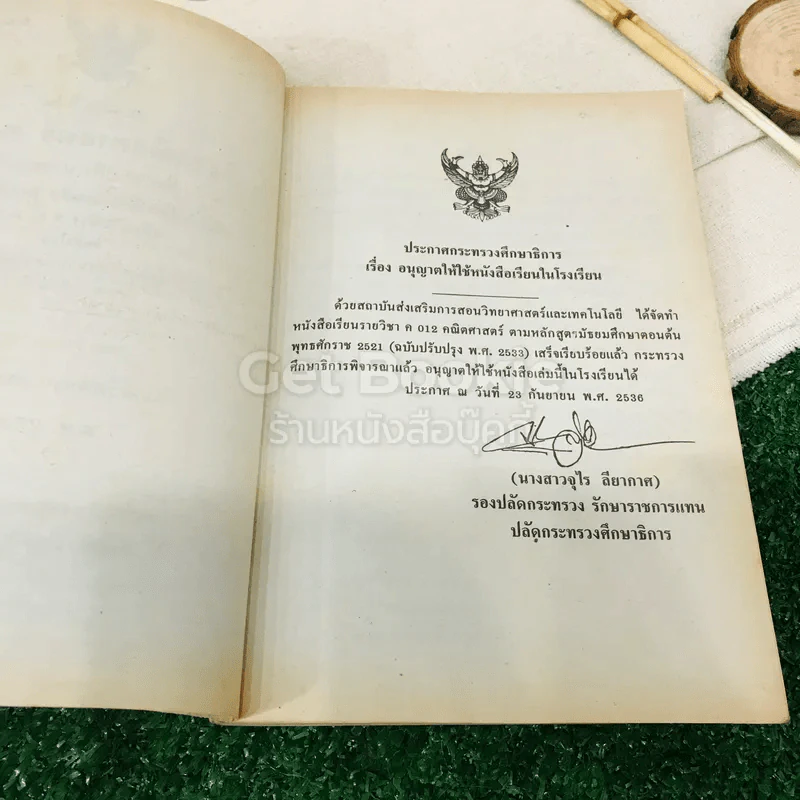 ประกาศกระทรวงศึกษาธิการ
เรื่อง อนุญาตให้ใช้หนังสือเรียนในโรงเรียน
ด้วยสถาบันส่งเสริมการสอนวิทยาศาสตร์และเทคโนโลยี ได้จัดทำ
หนังสือเรียนรายวิชา ค 012 คณิตศาสตร์ ตามหลักสูตรมัธยมศึกษาตอนต้น
พุทธศักราช 2521 (ฉบับปรับปรุง พ.ศ. 2533) เสร็จเรียบร้อยแล้ว กระทรวง
ศึกษาธิการพิจารณาแล้ว อนุญาตให้ใช้หนังสือเล่มนี้ในโรงเรียนได้
Get Bookie
ประกาศ ณ วันที่ 23 กันยายน พ.ศ. 2536
ร้านหนังสือบุ๊คกี้
(นางสาวจุไร ลียากาศ)
รองปลัดกระทรวง รักษาราชการแทน
ปลัดกระทรวงศึกษาธิการ